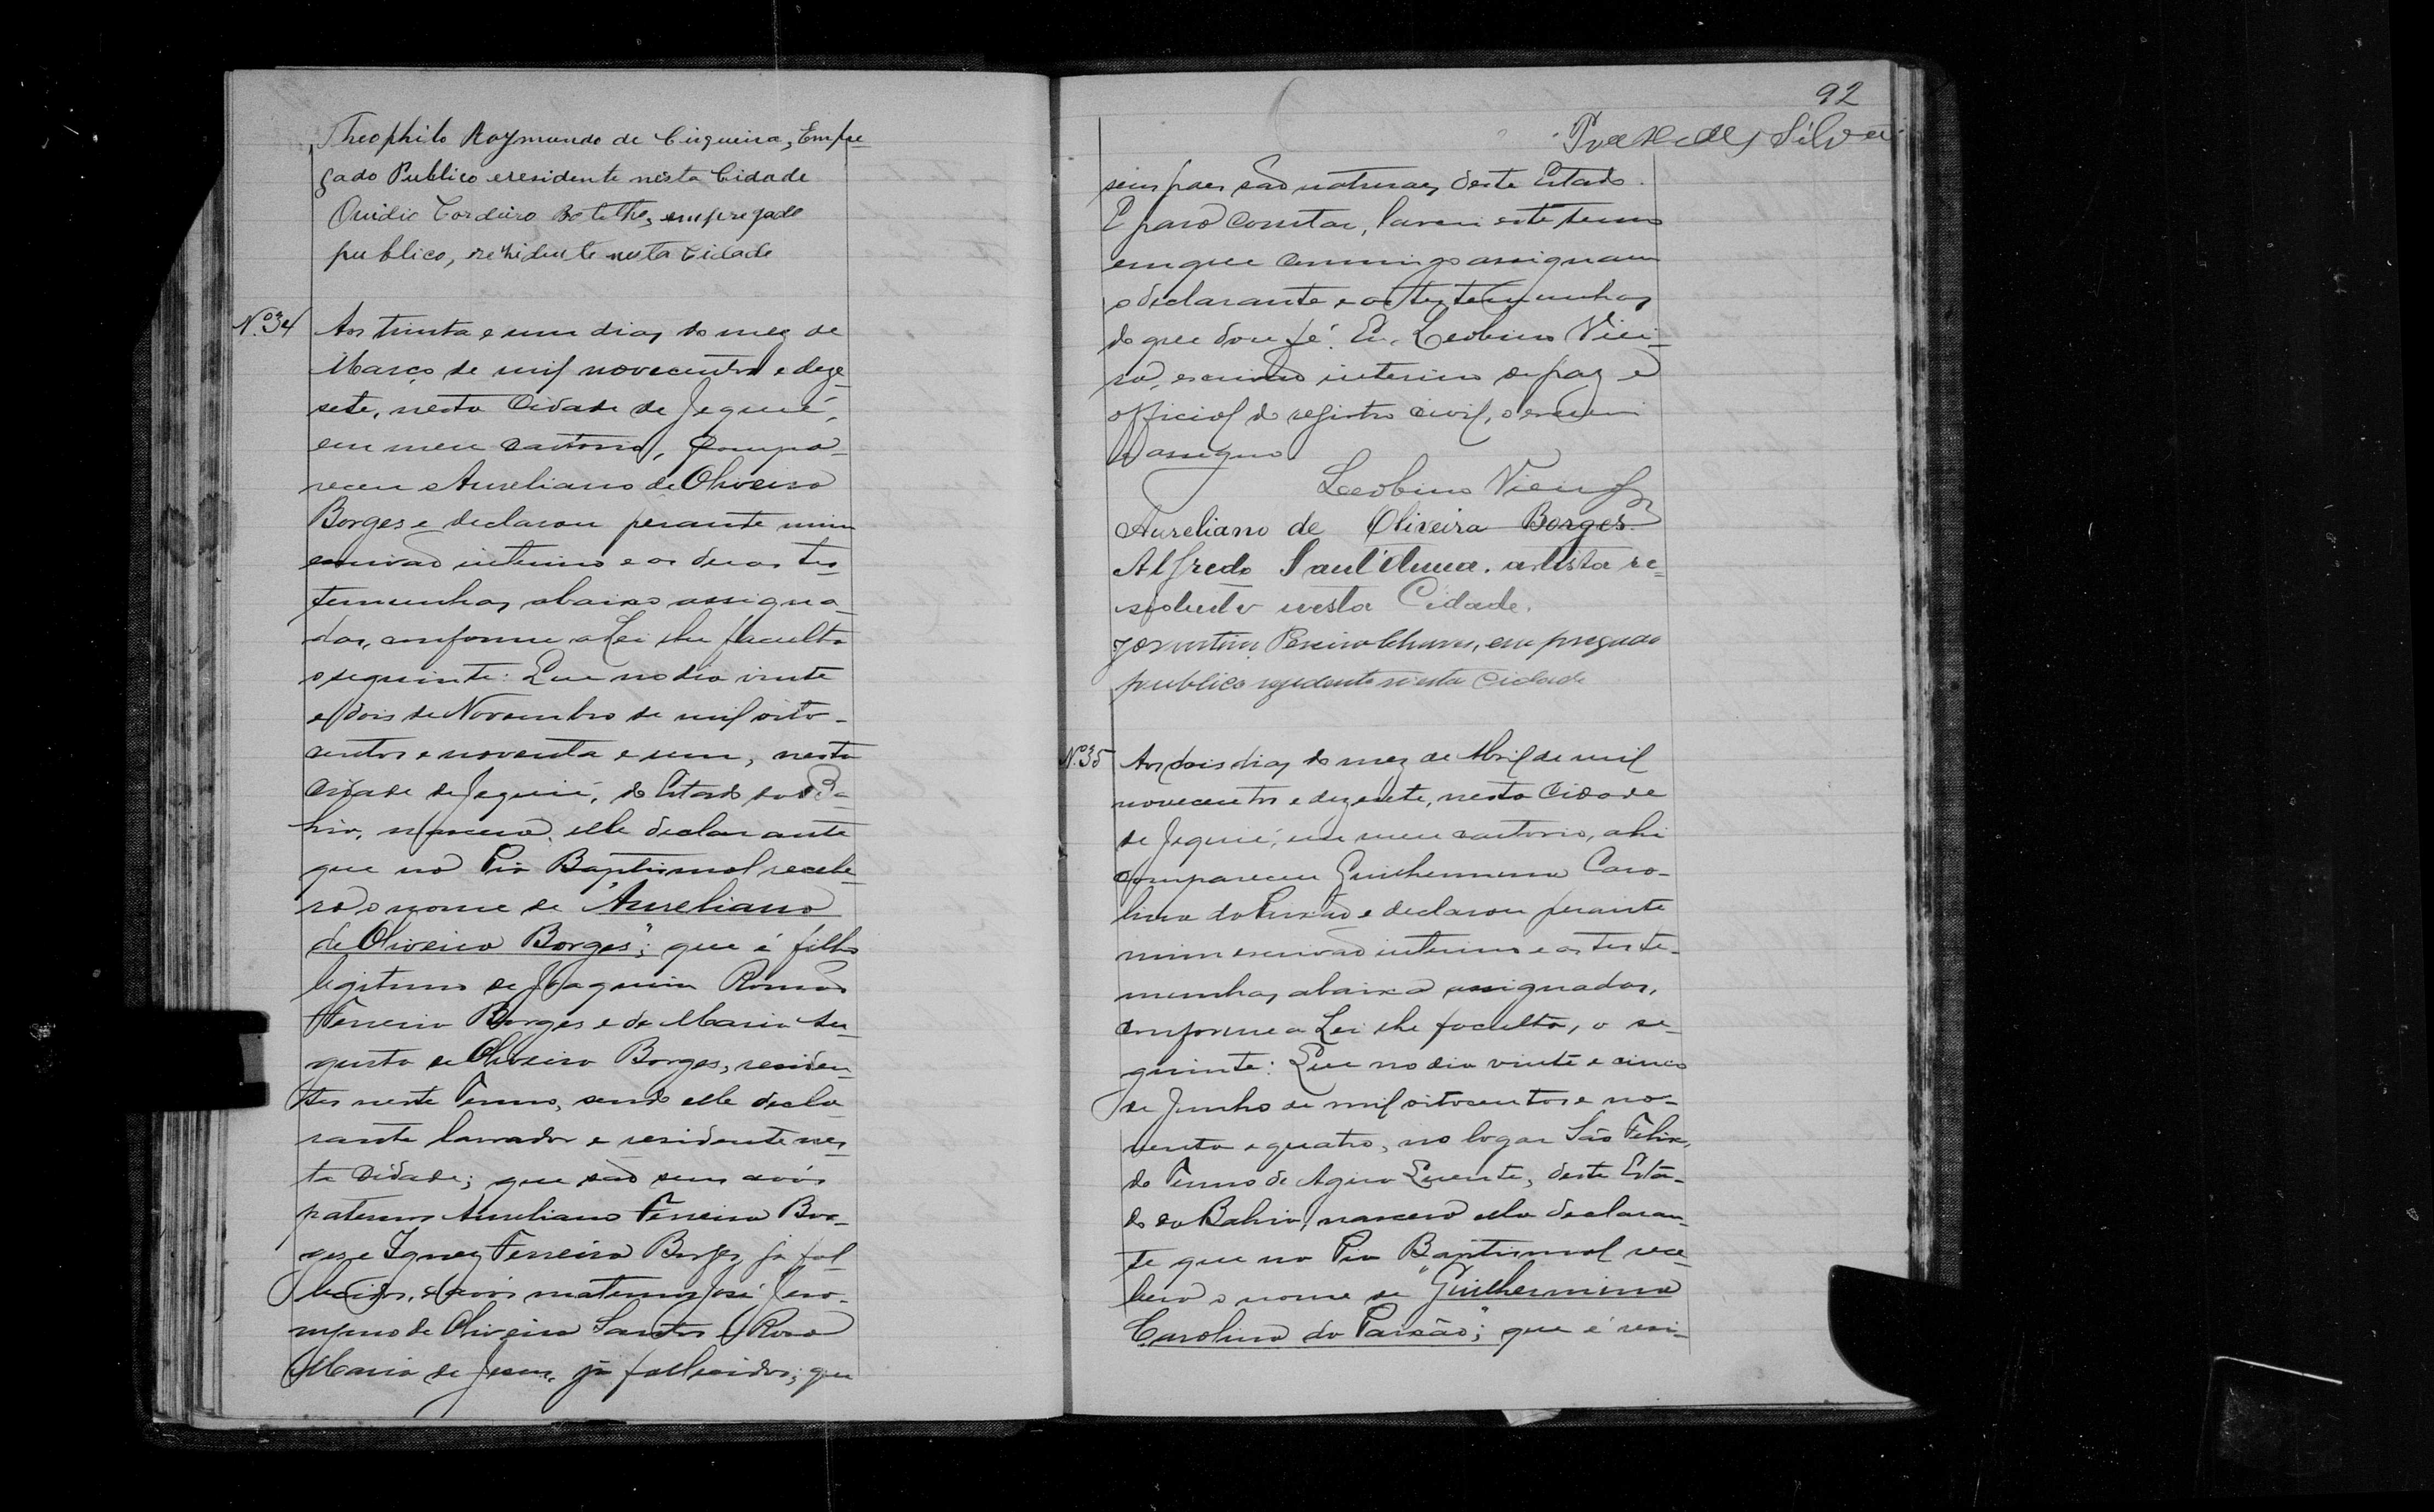 Theophilo Raymundo de Cirqueira, Empre
gado Publico e residente nesta Cidade
Ouidio Cordeiro Botelho, empregado
publico, rezidente nesta Cidade
Nº 34 Aos trinta e um dias do mez de
Março de mil novecentos e deze-
sete, nesta Cidade de Jequié,
em meu cartorio, compa-
receu Aureliano de Oliveira
Borges e declarou perante mim
escrivão interino e as duas tes-
temunhas abaixo assigna-
das, conforme a Lei lhe faculta
o seguinte: Que no dia vinte
e dois de Novembro de mil oito-
centos e noventa e um, nesta
Cidade de Jequié, do Estado da Ba-
hia, nascera elle declarante
que na Pia Baptismal recebe-
ra o nome de "Aureliano
de Oliveira Borges"; que é filho
legitimo de Joaquim Romão
Ferreira Borges e de Maria Au-
gusta de Oliveira Borges, residen-
tes neste Termo, sendo elle decla-
rante lavrador e residente nes-
ta Cidade; que são seus avós
paternos Aureliano Ferreira Bor-
ges e Ignez Ferreira Borges já fal-
lecidos, e avós maternos José Jero-
nymo de Oliveira Santos e Rosa
Maria de Jesus, já fallecidos; que
92
Silva
seus paes são naturaes deste Estado.
E para constar, lavrei este termo
em que commigo assignam
o declarante e as testemunhas
do que dou fé. Eu, Leobino Viei-
ra, escrivão interino de paz e
official do registro civil, o escrevi
e assigno.
Leobino Vieira
Aureliano de Oliveira Borges
Alfredo Sant'Anna, artista re-
sidente nesta Cidade.
Pereira Chaves, empregado
publico rezidente nesta Cidade
Nº 35 Aos dois dias do mez de Abril de mil
novecentos e dezesete, nesta Cidade
de Jequié, em meu cartorio, ahi
compareceu Guilhermina Caro-
lina da Paixão e declarou perante
mim escrivão interino e as teste-
munhas abaixo assignadas,
conforme a Lei lhe faculta, o se-
guinte: Que no dia vinte e cinco
de Junho de mil oitocentos e no-
venta e quatro, no logar São Felix,
do Termo de Agua Quente, deste Esta-
do da Bahia, nascera ella declaran-
te que na Pia Baptismal rece-
bera o nome de "Guilhermina
Carolina da Paixão"; que é resi-